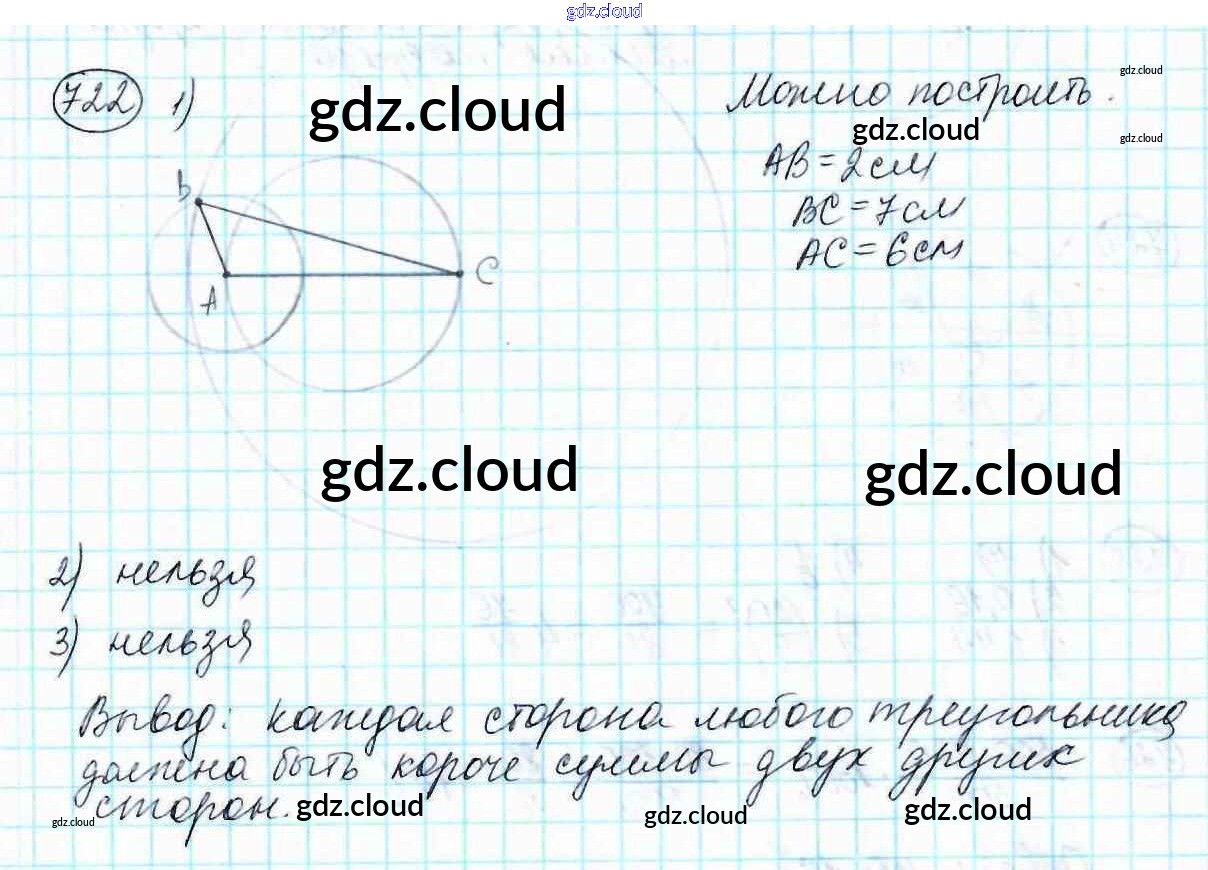 gdz.cloud
722 1) gdz.cloud Можно построить. gdz.cloud
gdz.cloud gdz.cloud
AB = 2 см
B
BC = 7 см
AC = 6 см
C
A
gdz.cloud gdz.cloud
2) нельзя
3) нельзя
Вывод: каждая сторона любого треугольника
должна быть короче суммы двух других
сторон. gdz.cloud gdz.cloud gdz.cloud
gdz.cloud